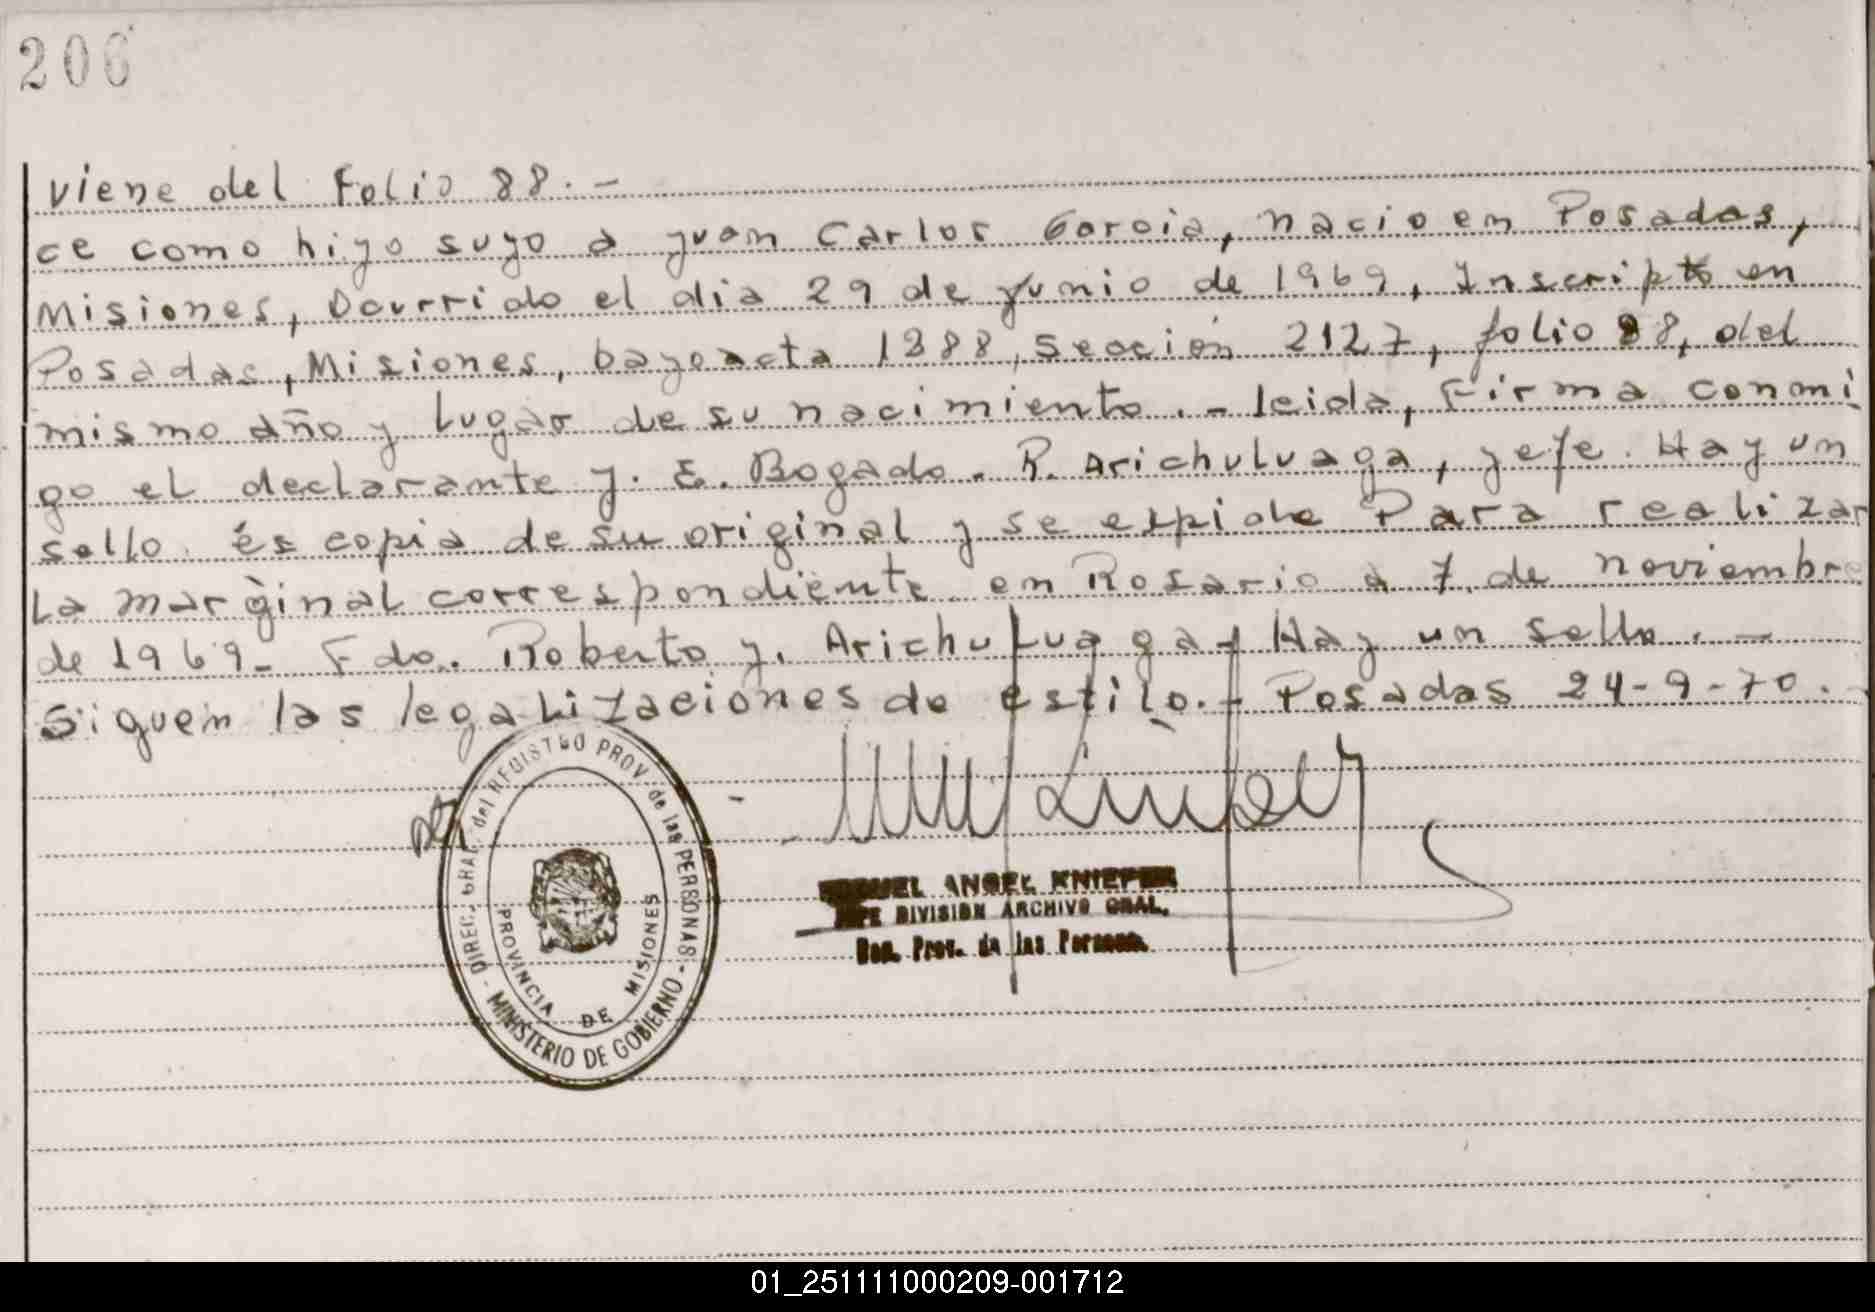 206
viene del Folio 88. -
ce como hijo suyo a Juan Carlos Garcia, nacio en Posadas,
Misiones, Ocurrido el dia 29 de Junio de 1969, Inscripto en
Posadas, Misiones, bajo acta 1388, Sección 2127, folio 88, del
mismo año y lugar de su nacimiento. - leida, Firma conmi
go el declarante J. E. Bogado. R. Arichuluaga, jefe. Hay un
sello. és copia de su original y se expide Para realizar
La marginal correspondiente en Rosario a 7 de noviembre
de 1969- Fdo. Roberto J. Arichuluaga - Hay un sello. -
Siguen las legalizaciones de estilo. - Posadas 24-9-70. -
DIREC. GRAL. del REGISTRO PROV. de las PERSONAS - MINISTERIO DE GOBIERNO -
PROVINCIA DE MISIONES
MIGUEL ANGEL KNIEFER
JEFE DIVISION ARCHIVO GRAL.
Reg. Prov. de las Personas
01_251111000209-001712